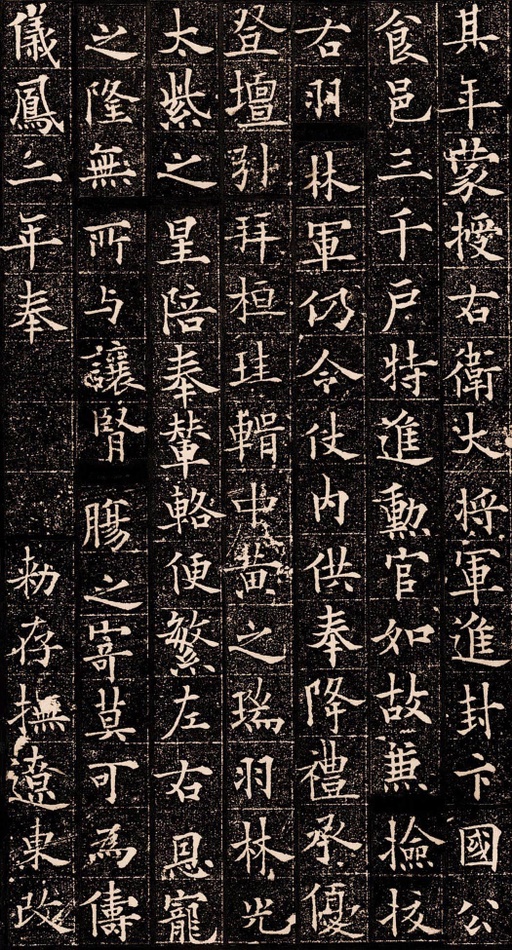 其年蒙授右衛大将軍進封卞國公
食邑三千戶特進勳官如故兼撿挍
右羽林軍仍令仗内供奉降禮承優
登壇引拜桓珪輯中黄之瑞羽林光
太紫之星陪奉輦輅便繁左右恩寵
之隆無所与讓腎腸之寄莫可為儔
儀鳳二年奉敕存撫遼東改